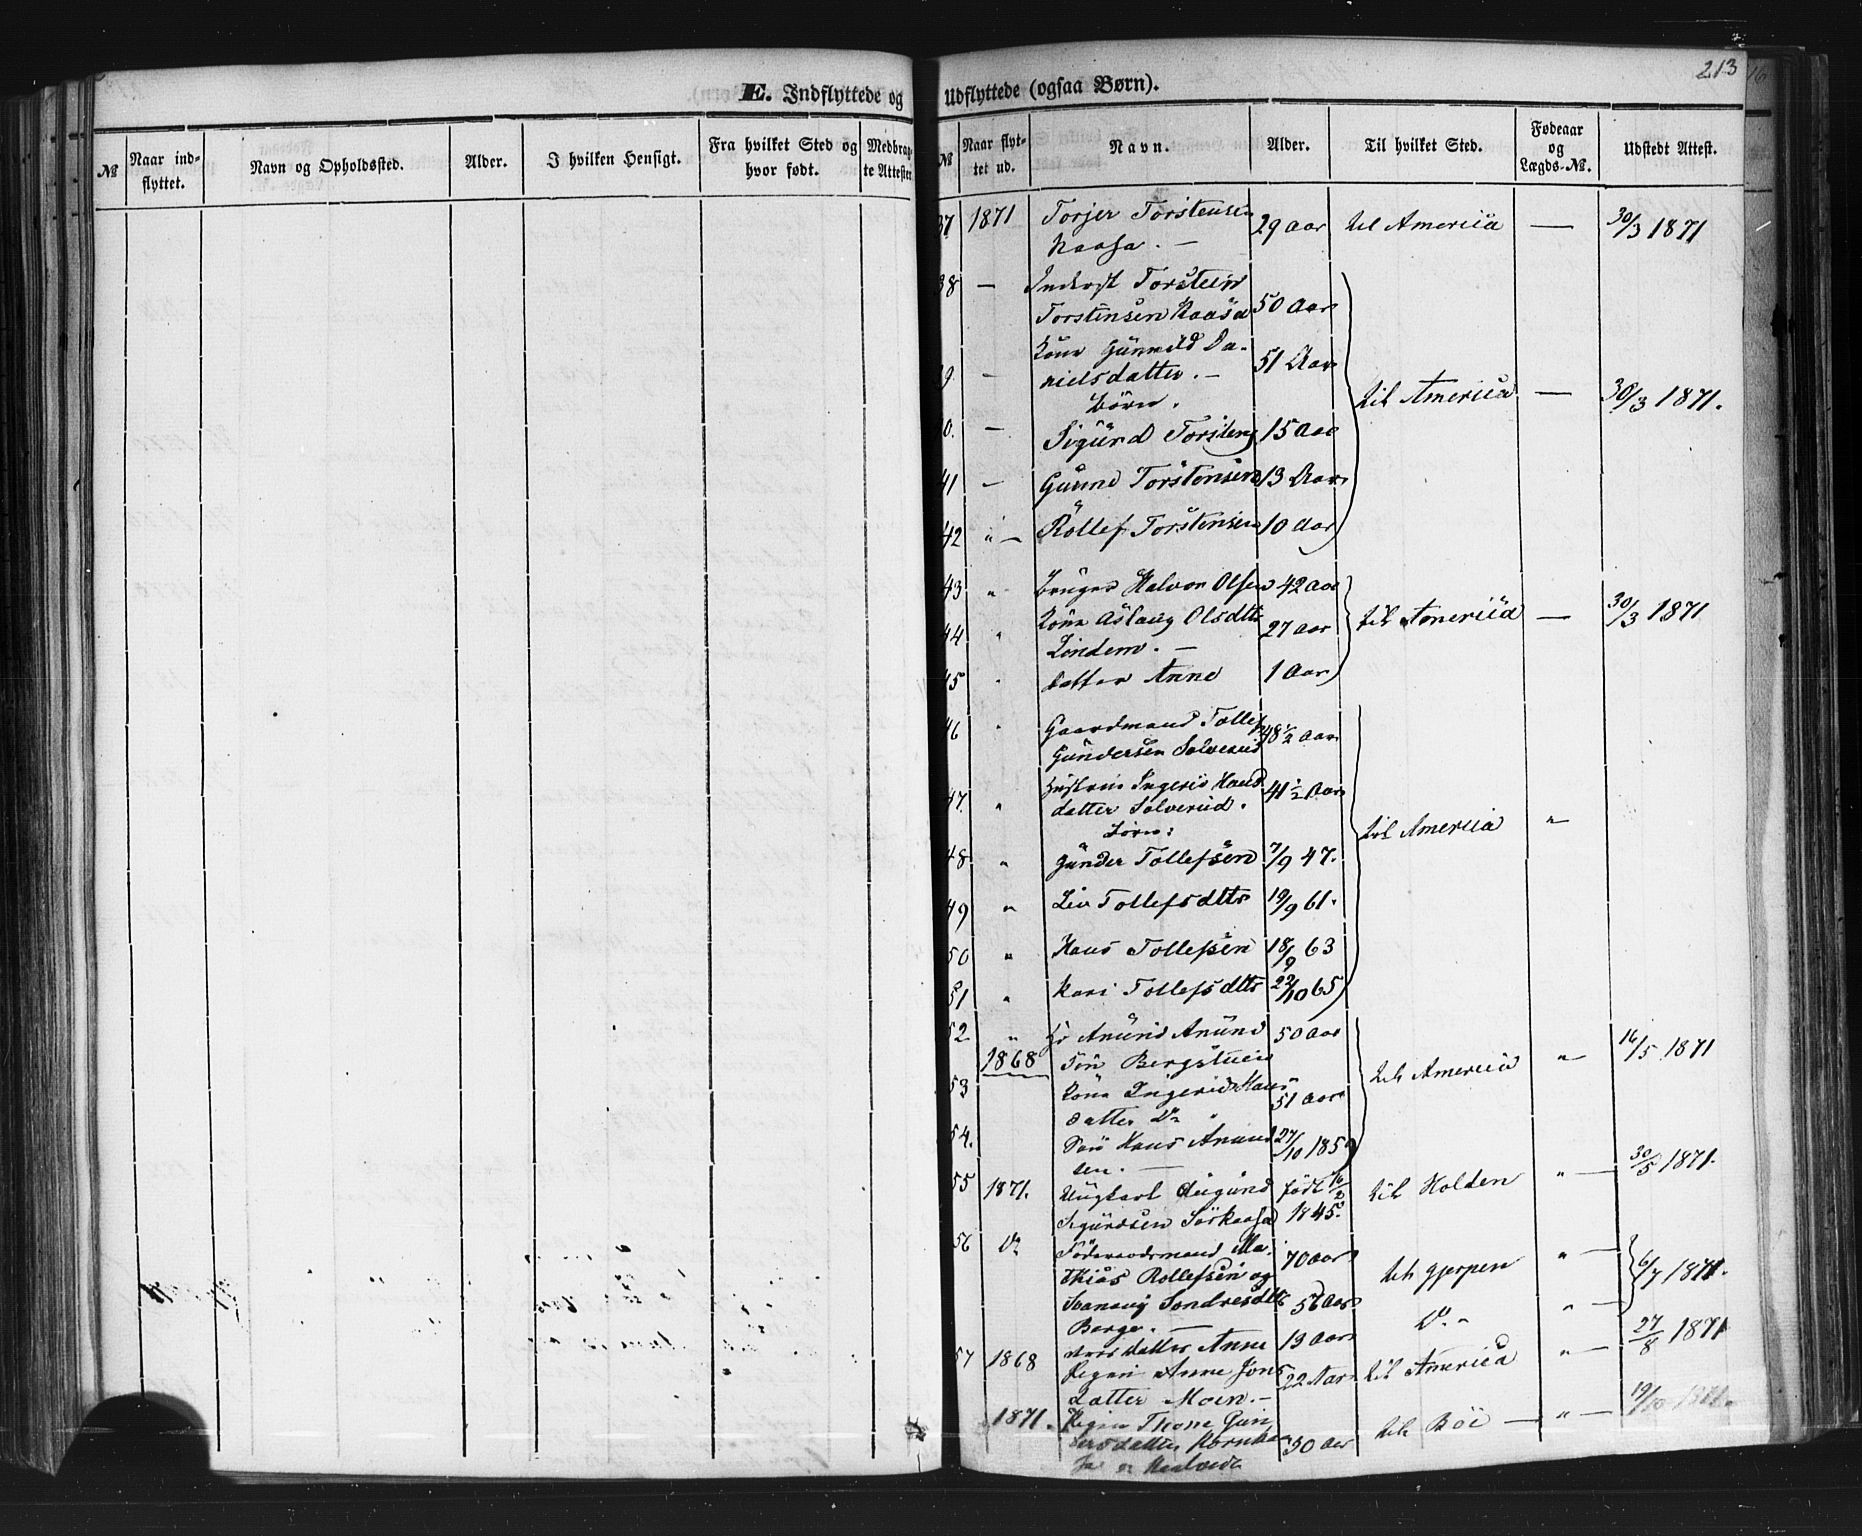 213
16
E. Indflyttede og
Udflyttede (ogsaa Børn).
№ Naar ind-flyttet. Navn og Opholdssted. Alder. I hvilken Hensigt. Fra hvilket Sted og hvor født. Medbrag-te Attester
№ Naar flyt-tet ud. Navn. Alder. Til hvilket Sted. Fødeaar og Lægds-№. Udstedt Attest.
37 1871 Torjer Torstensen 29 Aar til Ameriia — 30/3 1871
Kaasa. —
38 — Inderst Torstein
Torstensen Kaasa 50 Aar
39 — Kone Gunnild Da-
nielsdatter. — 51 Aar
Börn. til America — 30/3 1871.
40. — Sigurd Torstens 15 Aar
41 — Gunne Torstensen 13 Aar
42 " — Rollef Torstensen 10 Aar
43 " Halvor Olsen 42 Aar
44 " Kone Aslaug Olsdtr 27 Aar til Ameriia — 30/3 1871
Lindem. —
45 " datter Anne 1 Aar
46 " Gaardmand Tollef 48 ½ Aar
Gundersen Solverud
47. " Hustrue Ingerid Hans 41 ½ Aar
datter Solverud.
Börn: til Ameriia "
48 " Gunder Tollefsen 7/9 47.
49 " Liv Tollefsdtr 19/9 61.
50 " Hans Tollefsen 18/9 63
51 " Kari Tollefsdtr 22/10 65
52 " Anund Anund 50 Aar
1868 sön Bergstuen til Ameriia " 16/5 1871
53 Kone Ingerid Hans 51 Aar
datter Do
54. Sön Hans Anund 27/10 185
sen. —
55 1871. Ungkarl Sigurd födt 16/2 til Holden " — 30/5 1871.
Sigurdsen Sörkaasa 1845.
56 Do Föderaadsmand Ma- 70 Aar til Gjerpen " — 6/7 1871.
thias Rollefsen og
Svanaug Sondresdtr 56 Aar Do " —
Berge. —
datter Anne 13 Aar
57 1868 Pigen Anne Jons 22 Aar til America " — 27/8 1871
datter Moen. —
1871. Pigen Thone Gun 30 Aar til Böi — " — 19/10 1871.
dersdatter